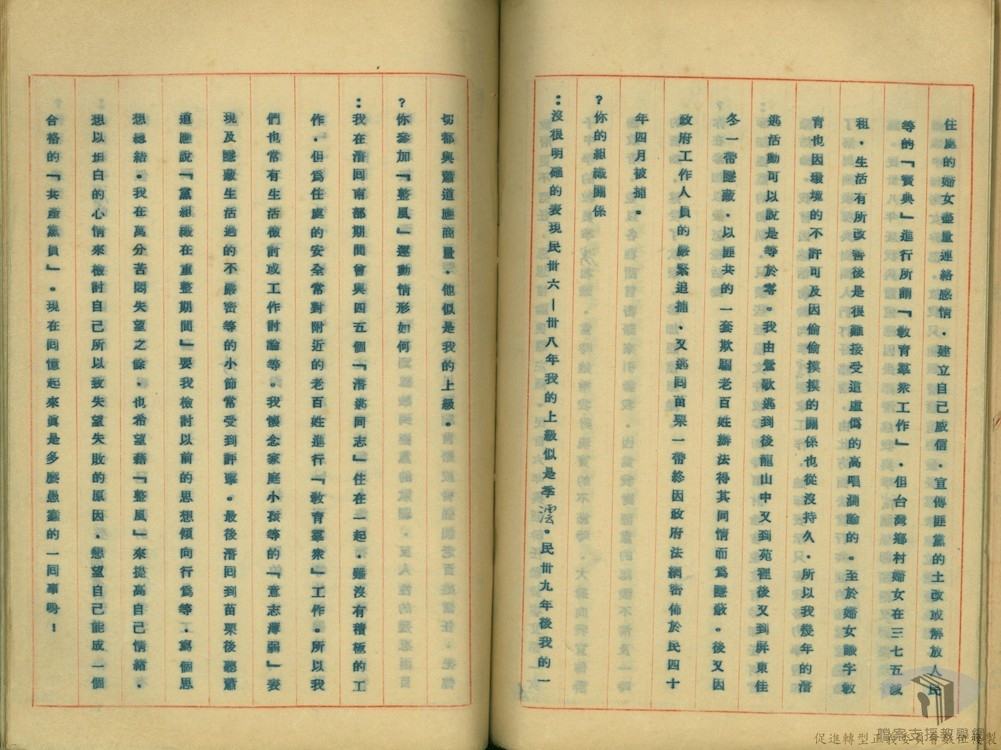 住處的婦女盡量連絡感情．建立自己威信．宣傳匪黨的土改或解放人民
等的「寶典」進行所謂「教育羣衆工作」．但台灣鄉村婦女在三七五減
租．生活有所改善後是很難接受這虛僞的高唱濶論的。至於婦女識字教
育也因環境的不許可及因偷偷摸摸的關係也從沒持久．所以我幾年的潛
逃活動可以說是等於零。我由鶯歌逃到後龍山中又到苑裡後又到屏東佳
冬一帶隱藏．以匪共的一套欺騙老百姓辦法得其同情而爲隱蔽。後又因
政府工作人員的嚴緊追捕、又逃回苗栗一帶終因政府法網密佈於民四十
年四月被捕。
？你的組織關係
：沒很明確的表現民卅六—卅八年我的上級似是季澐。民卅九年後我的一
切都與蕭道應商量．他似是我的上級。
？你參加「整風」運動情形如何
：我在潛回南部期間曾與四五個「潛逃同志」住在一起．雖沒有積極的工
作．但爲住處的安全常對附近的老百姓進行「教育羣衆」工作。所以我
們也常有生活檢討或工作討論等。我懷念家庭小孩等的「意志薄弱」表
現及隱蔽生活過的不嚴密等的小節常受到評擊。最後潛回到苗栗後聽蕭
道應說「黨組織在重整期間」要我檢討以前的思想傾向行爲等．寫個思
想總結。我在萬分苦悶失望之餘．也希望藉「整風」來提高自己情緒．
想以坦白的心情來檢討自己所以致失望失敗的原因．戀望自己能成一個
合格的「共產黨員」。現在回憶起來眞是多麼愚蠢的一回事呀！
檔案支援教學網
促進轉型正義委員會數位複製